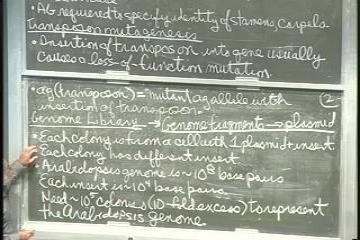 • AG required to specify identity of stamens, carpels
Transposon mutagenesis
• Insertion of transposon into gene usually
causes loss-of-function mutation.
• ag (transposon) = mutant ag allele with (2
insertion of transposon.
Genome Library → Genome fragments → plasmid
• Each colony is from a cell with 1 plasmid + insert.
• Each colony has different insert
• Arabidopsis genome is ~ 10⁸ base pairs
• Each insert is ~10⁴ base pairs
• Need ~ 10⁵ colonies (10-fold excess) to represent
the Arabidopsis genome